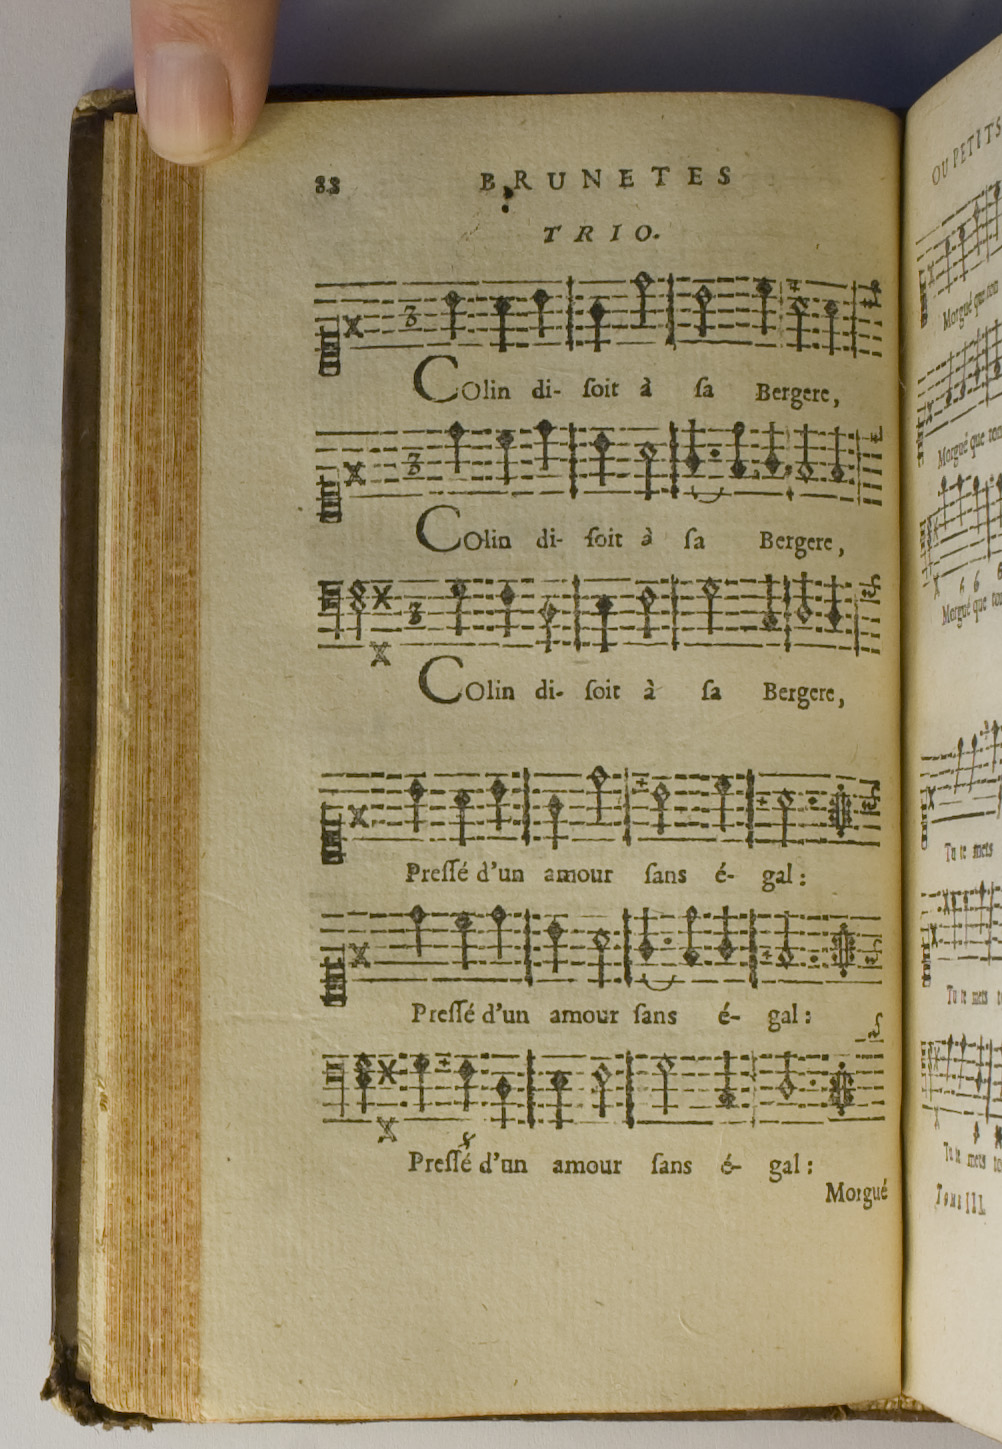 88 BRUNETES
TRIO.
Colin di- ſoit à ſa Bergere,
Colin di- ſoit à ſa Bergere,
Colin di- ſoit à ſa Bergere,
Preſſé d'un amour ſans é- gal :
Preſſé d'un amour ſans é- gal :
Preſſé d'un amour ſans é- gal :
Morgué
OU PETITS
Morgué que ton
Morgué que ton
6 6
Morgué que ton
Tu te mets
Tu te mets
Tu te mets
TOME III.